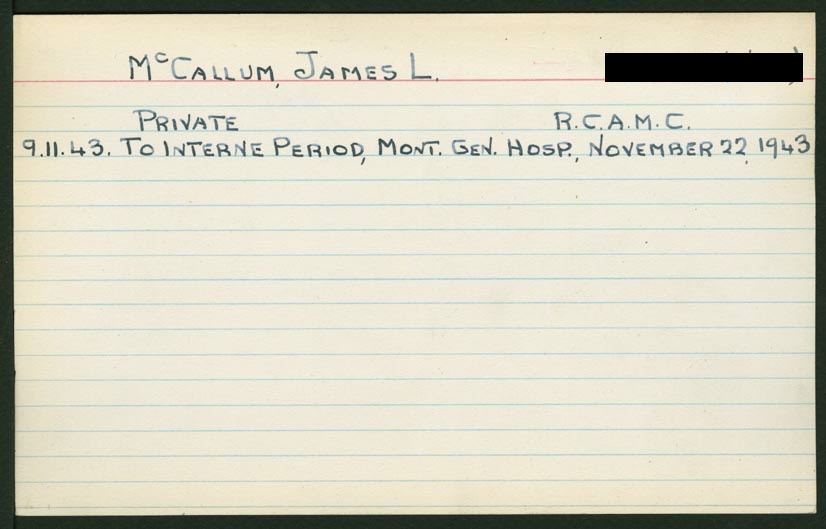 McCALLUM, JAMES L.
PRIVATE R.C.A.M.C.
9.11.43. TO INTERNE PERIOD, MONT. GEN. HOSP., NOVEMBER 22, 1943